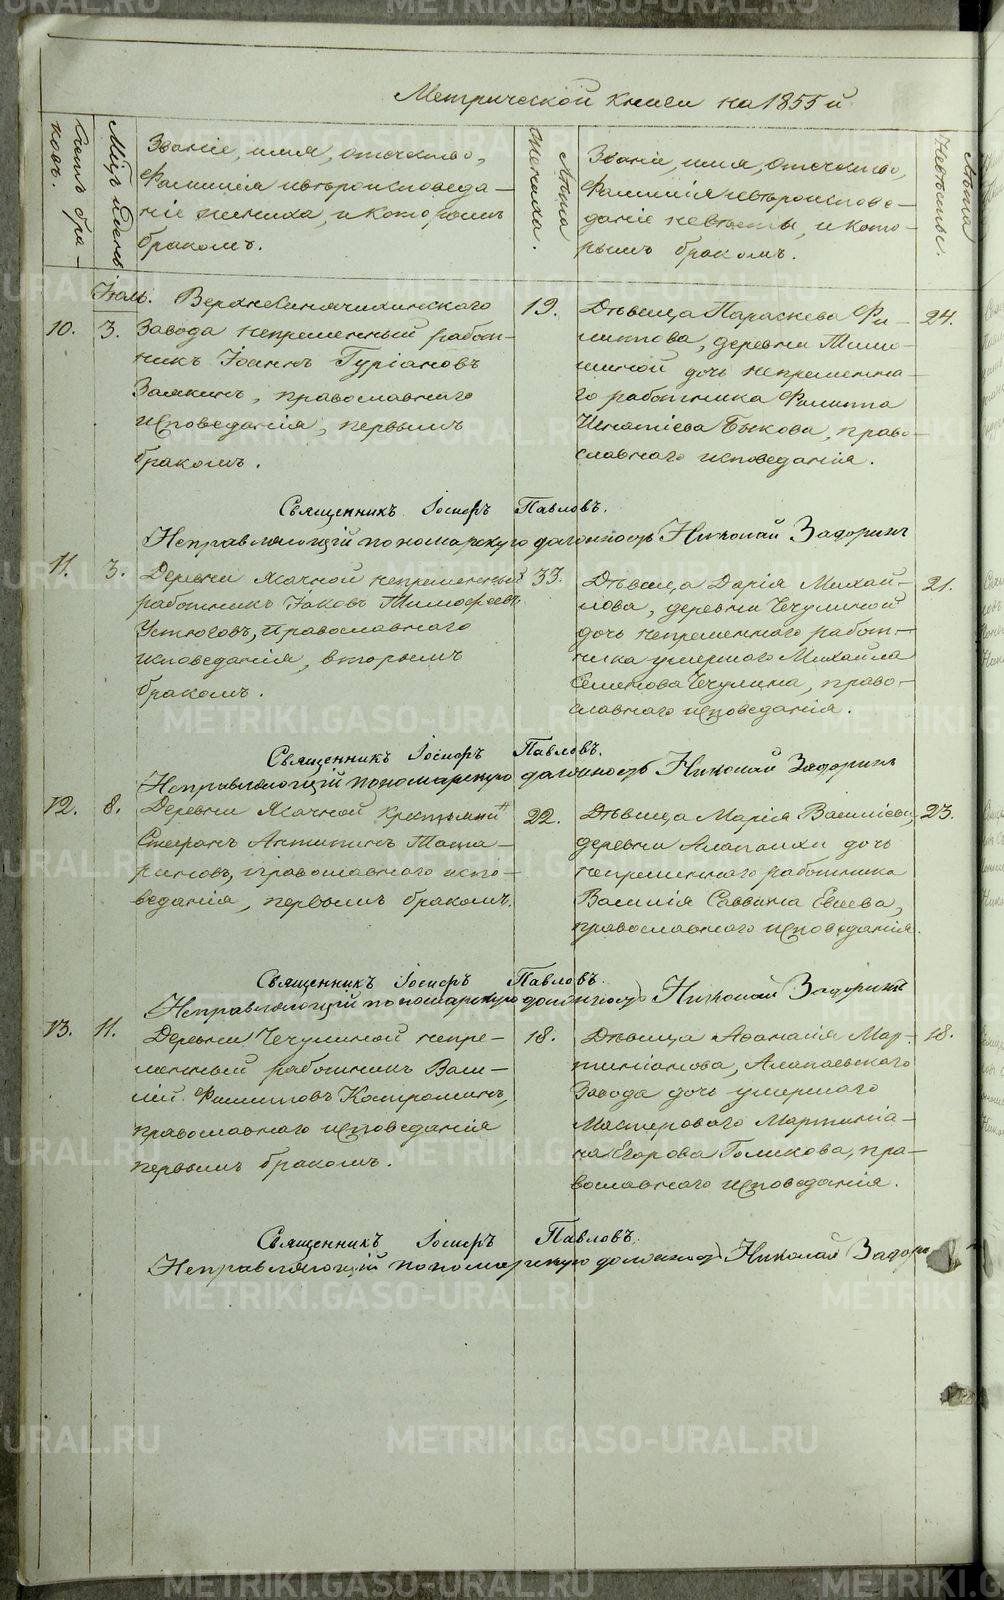 Метрической книги на 1855й
Счетъ бра-
ковъ.
Мѣц. и день
Званіе, имя, отчество,
Фамилія и вѣроисповеда-
ніе жениха, и которымъ
бракомъ.
Лѣта
жениха.
Званіе, имя, отчество,
Фамилія и вѣроиспове-
даніе невѣсты, и кото-
рымъ бракомъ.
Лѣта
Невѣсты.
Іюль.
10. 3.
Верхнесинячихинскаго
Завода непременный работ-
никъ Іоаннъ Гуріановъ
Замкинъ, православнаго
исповеданія, первымъ
бракомъ.
19.
Дѣвица Параскева Фи-
липпова, деревни Тимо-
шиной дочь непременна-
го работника Филиппа
Игнатіева Быкова, право-
славнаго исповеданія.
24.
Священникъ Іосифъ Павловъ.
Исправляющій пономарскую должность Николай Задоринъ
11. 3.
Деревни Ясачной непременный
работникъ Іаковъ Тимофеевъ
Устюговъ, православнаго
исповеданія, вторымъ
бракомъ.
33.
Дѣвица Дарія Михай-
лова, деревни Чечулиной
дочь непременнаго работ-
ника умершаго Михайла
Семенова Чечулина, право-
славнаго исповеданія.
21.
Священникъ Іосифъ Павловъ.
Исправляющій пономарскую должность Николай Задоринъ
12. 8.
Деревни Ясачной
Стефанъ Антипинъ Тата-
риновъ, православнаго испо-
веданія, первымъ бракомъ.
22.
Дѣвица Марія Василіева,
деревни Алапаихи дочь
непременнаго работника
Василія Саввина Евсеева,
православнаго исповеданія.
23.
Священникъ Іосифъ Павловъ.
Исправляющій пономарскую должность Николай Задоринъ
13. 11.
Деревни Чечулиной непре-
менный работникъ Васи-
лій Филипповъ Костроминъ,
православнаго исповеданія
первымъ бракомъ.
18.
Дѣвица Аѳанасія Мар-
тиніанова, Алапаевскаго
Завода дочь умершаго
Мастероваго Мартиніа-
на Егорова Голикова, пра-
вославнаго исповеданія.
18.
Священникъ Іосифъ Павловъ.
Исправляющій пономарскую должность Николай Задорин